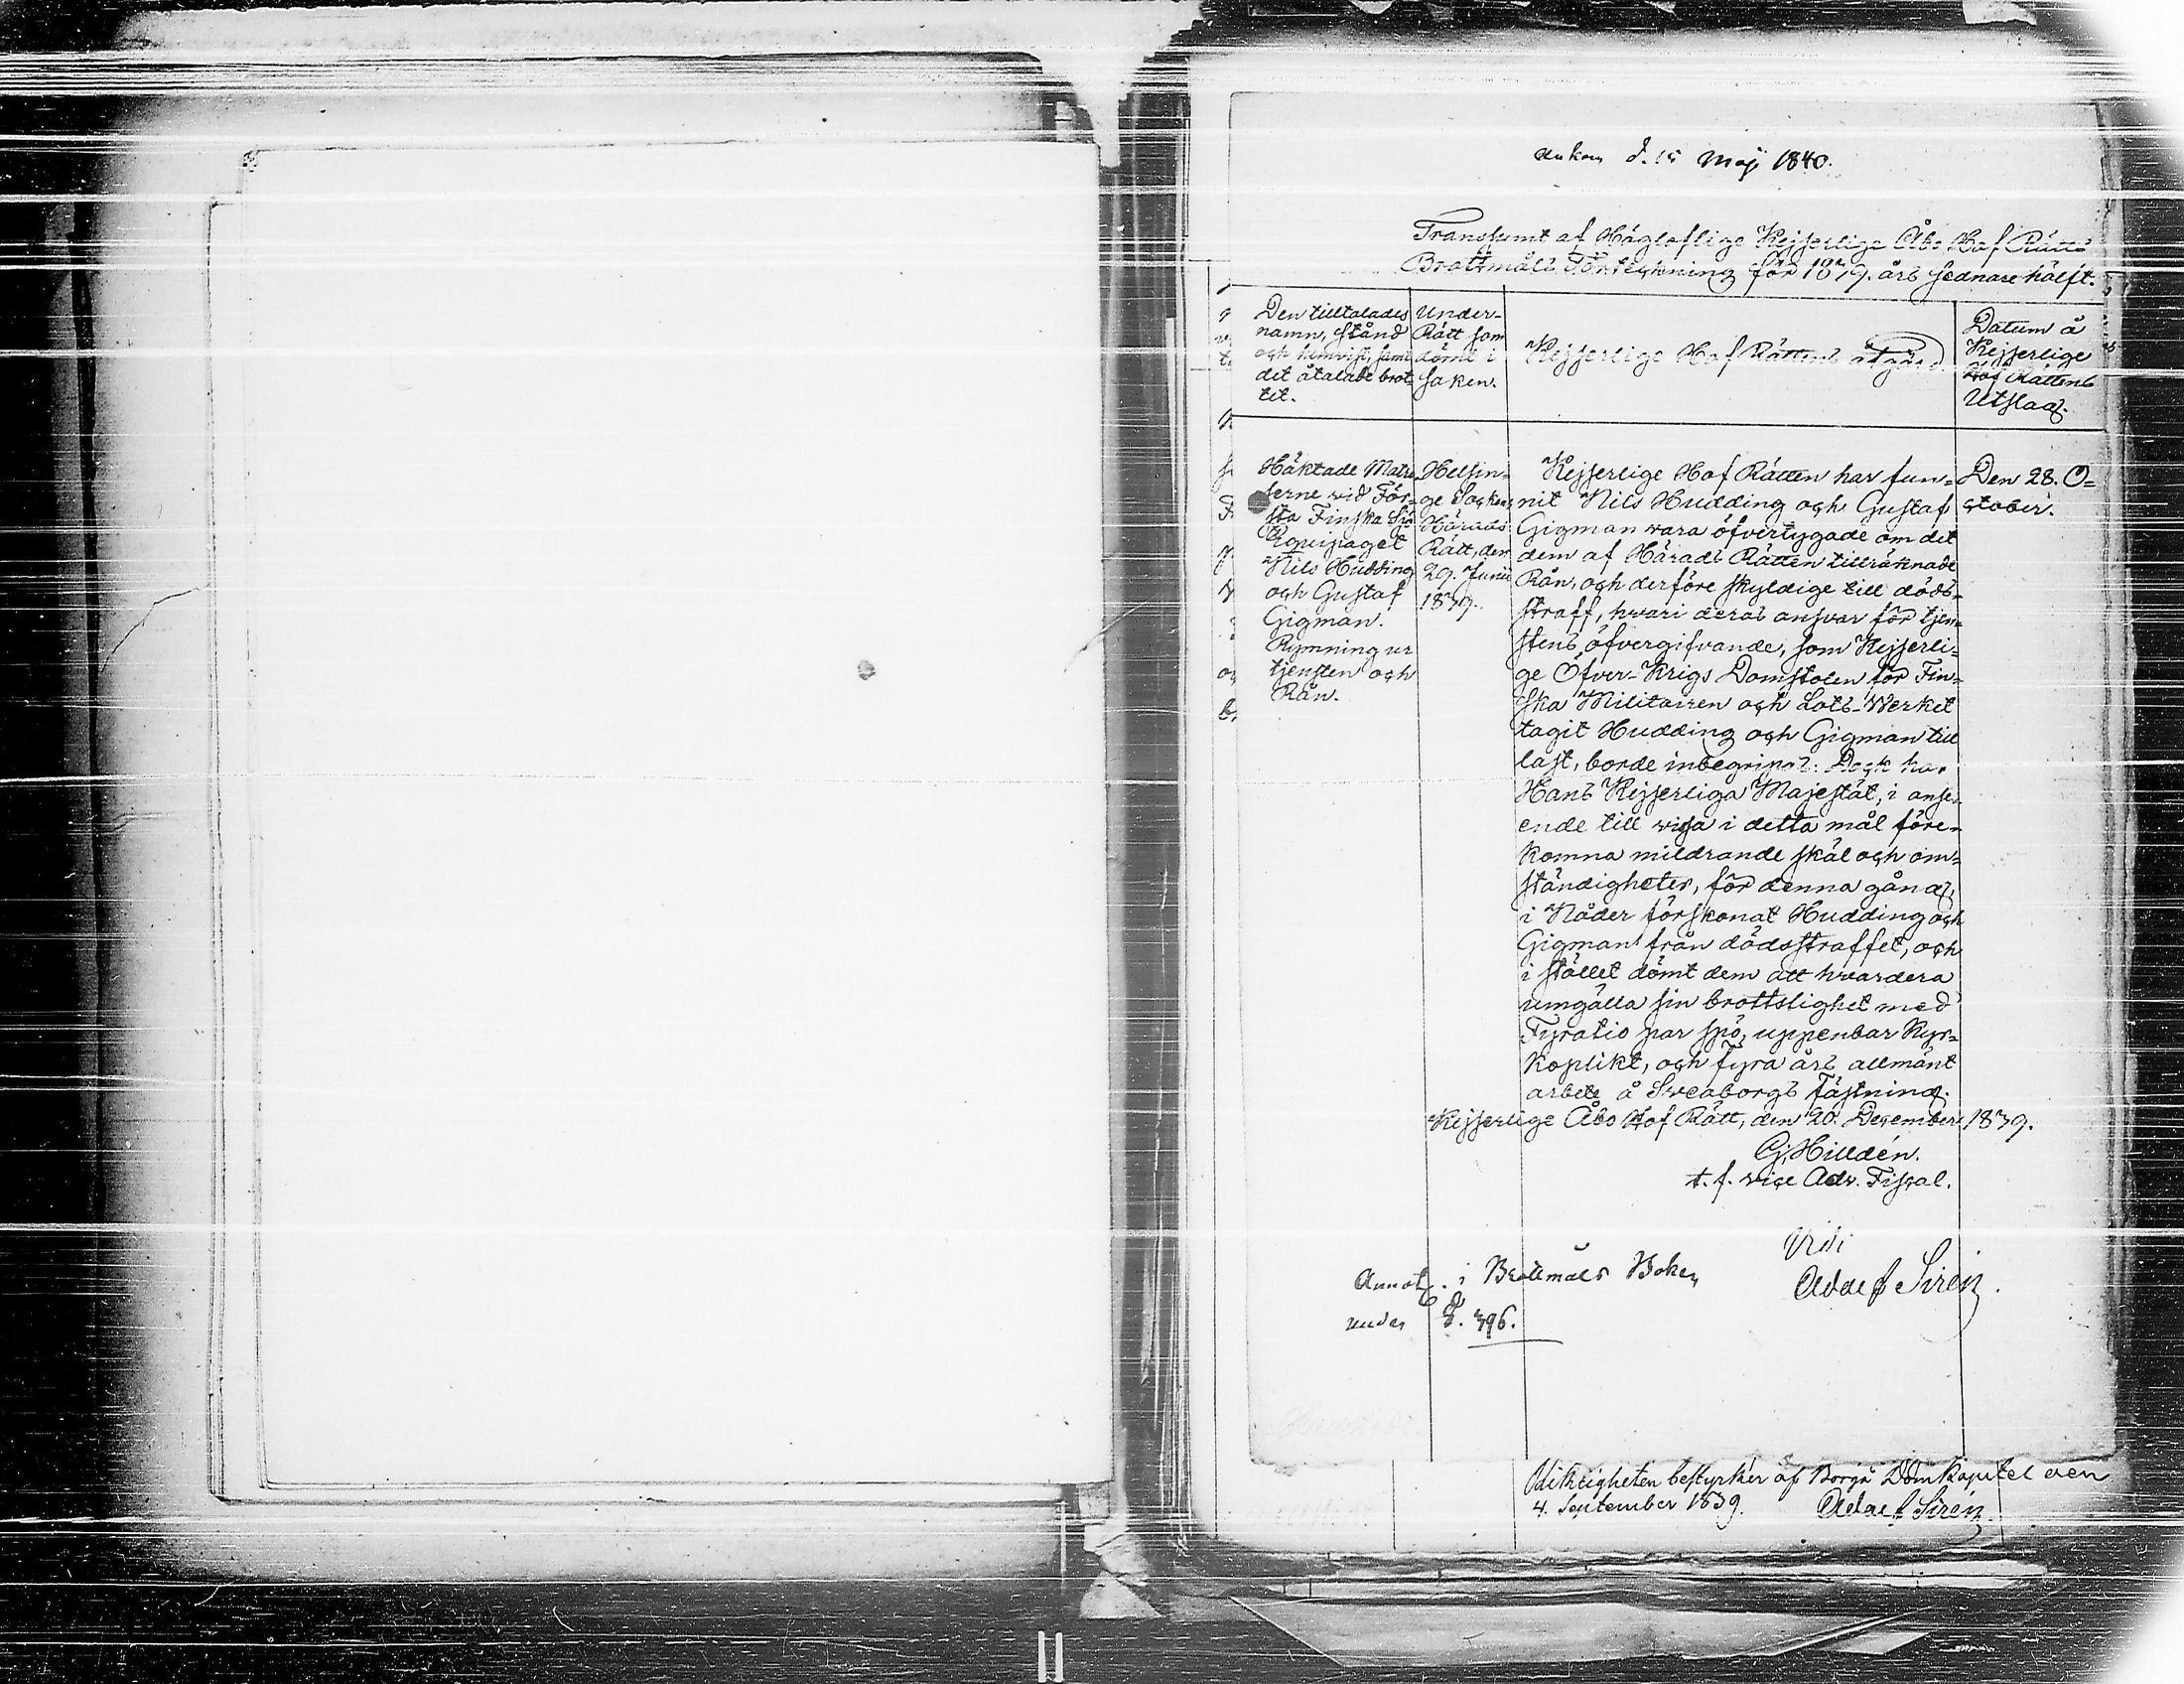 ankom d. 15 Maji 1840.
Transsumt af Högloflige Kejserlige Åbo Hof Rätts
Brottmåls Förteckning för 1839. års sednare hälft.
Den tilltalades
namn, stånd
och hemvist, samt
det åtalade brot
tet.
Under-
Rätt som
dömt i
saken.
Kejserlige Hof Rättens åtgärd
Datum å
Kejserlige
Hof Rättens
Utslag.
Häktade Matro
serne vid För-
sta Finska Sjö
Equipaget
Nils Hudding
och Gustaf
Gigman.
Rymning ur
tjensten och
Rån.
Helsin-
ge Sockens
Härads
Rätt, den
29. Junii
1839.
Kejserlige Hof Rätten har fun-
nit Nils Hudding och Gustaf
Gigman vara öfvertygade om det
dem af Härads Rätten tillräknade
Rån, och derföre skyldige till döds-
straff, hvari deras ansvar för tjen-
stens öfvergifvande, som Kejserli-
ge Öfver-Krigs Domstolen för Fin-
ska Militairen och Lots-Werket
tagit Hudding och Gigman till
last, borde inbegripas: Dock har
Hans Kejserliga Majestät, i anse-
ende till vissa i detta mål före-
komna mildrande skäl och om-
ständigheter, för denna gång,
i Nåder förskonat Hudding och
Gigman från dödsstraffet, och
i stället dömt dem att hvardera
umgälla sin brottslighet med
Fyratio par spö, uppenbar Kyr-
koplikt, och fyra års allmänt
arbete å Sveaborgs Fästning.
Den 28. O-
ctober.
Kejserlige Åbo Hof Rätt, den 20. December 1839.
G. Hilldén.
t. f. vice Adv. Fiscal.
Vidi
Adolf Sirén.
Annot. i Brottmåls Boken
under § 396.
Riktigheten bestyrker af Borgå Domkapitel den
4. September 1839. Adolf Sirén.